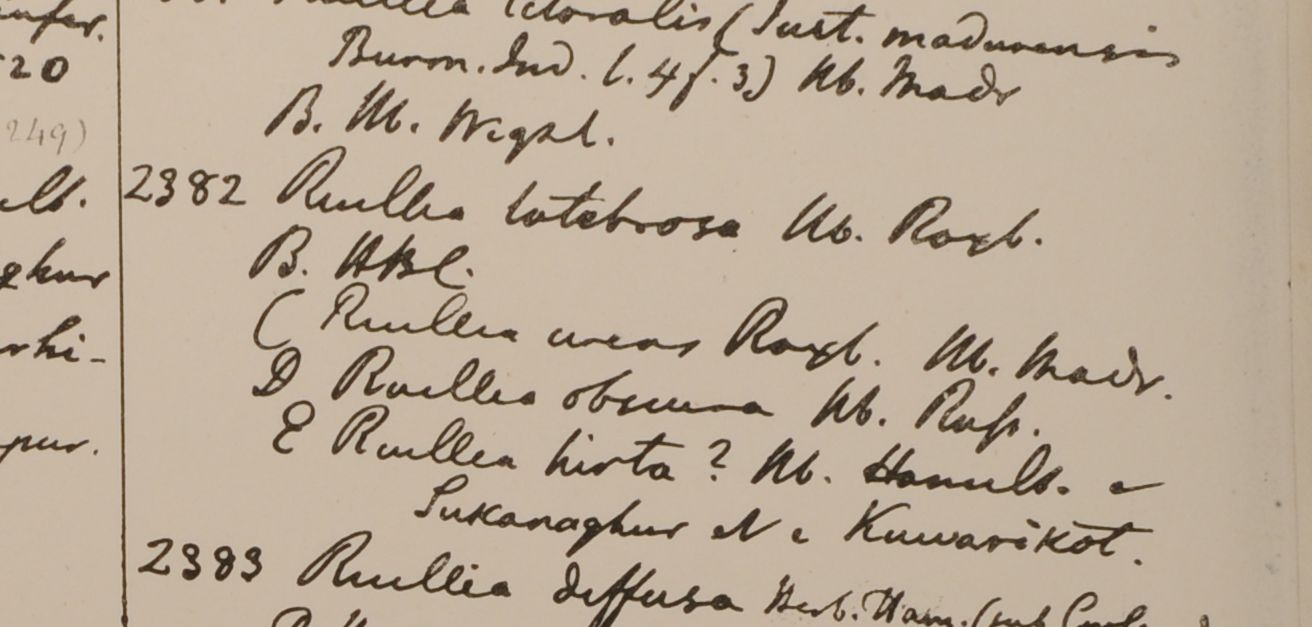 20
249)
Ruellia litoralis (Just. madurensis
Burm. Ind. t. 4 f. 3) Hb. Madr
B. Hb. Wight.
2382 Ruellia latebrosa Hb. Roxb.
B. HBC.
C Ruellia urens Roxb. Hb. Madr.
D Ruellia obscura Hb. Russ.
E Ruellia hirta? Hb. Hamilt. e
Sukanaghur et e Kuwarikot.
2383 Ruellia diffusa Herb. Ham. (sub